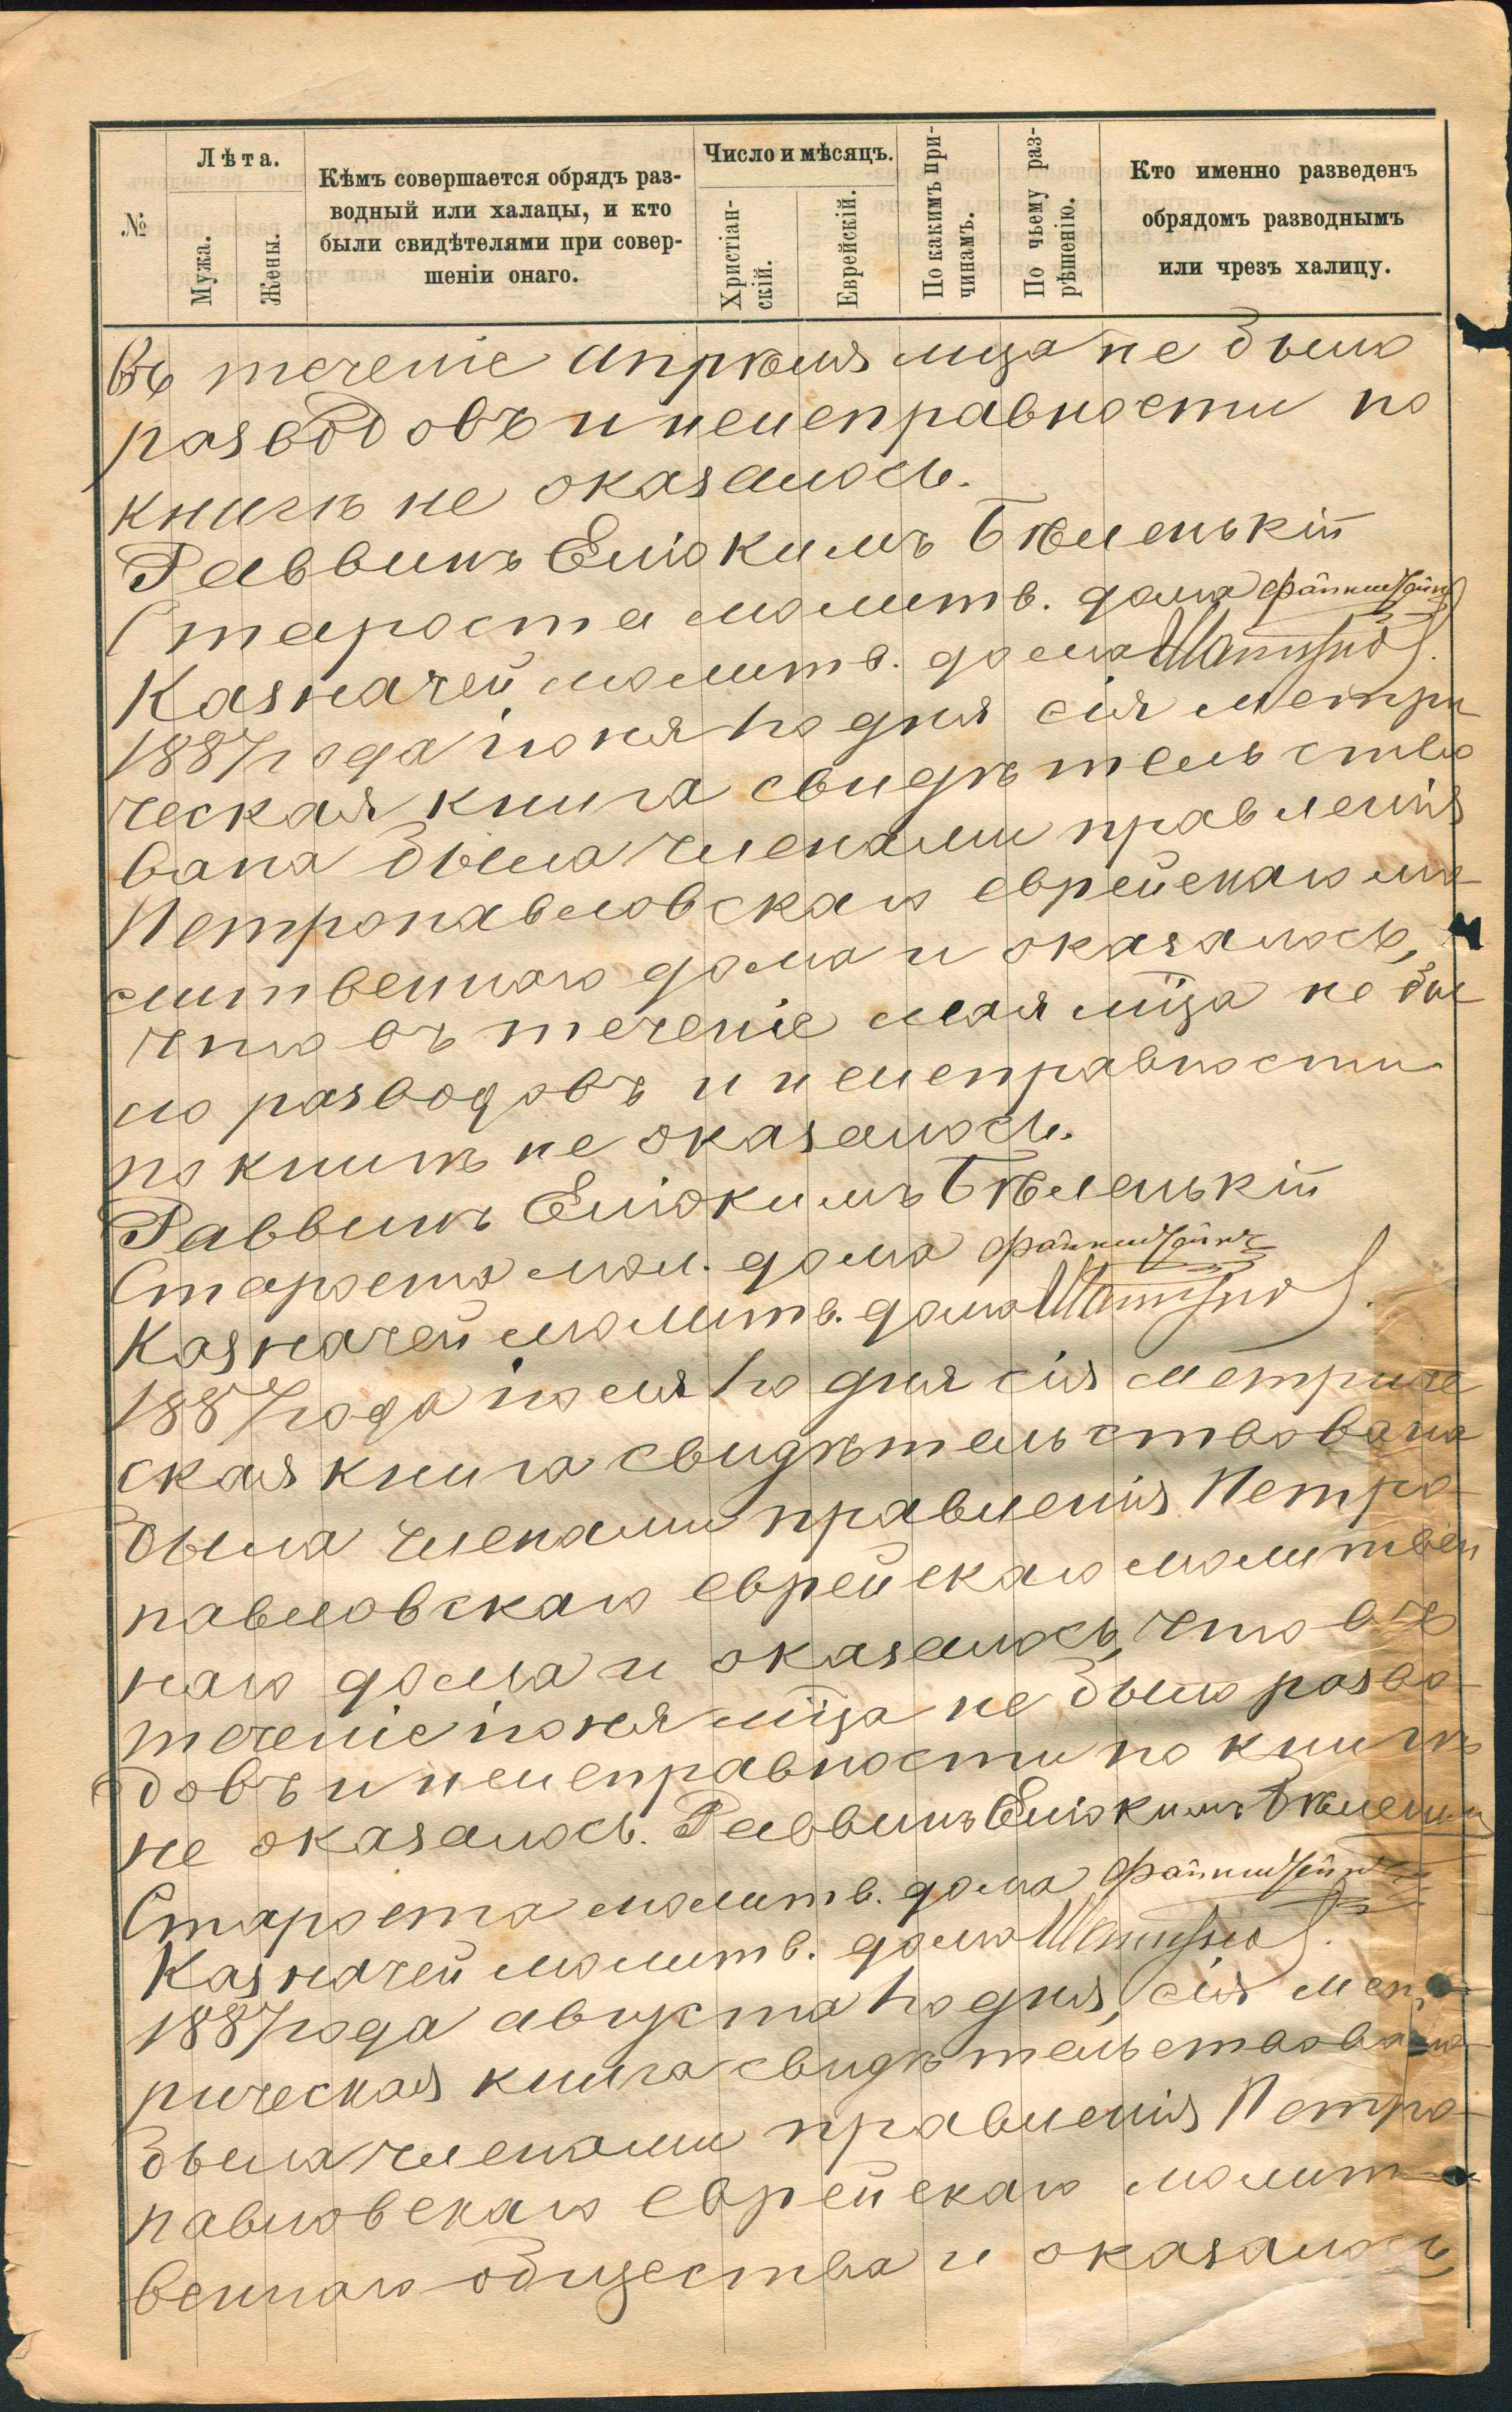 №
Лѣта.
Мужа.
Жены.
Кѣмъ совершается обрядъ раз-
водный или халацы, и кто
были свидѣтелями при совер-
шеніи онаго.
Число и мѣсяцъ.
Христіан-
скій.
Еврейскій.
По какимъ при-
чинамъ.
По чьему раз-
рѣшенію.
Кто именно разведенъ
обрядомъ разводнымъ
или чрезъ халицу.
Въ теченіе апрѣля мца не было
разводовъ и неисправности по
книгѣ не оказалось.
Раввинъ Еліокимъ Бѣленькій
Староста молитв. дома
Казначей молитв. дома Шапиро
1887 года іюня 1го дня сія метри
ческая книга свидѣтельство
вана была членами правленія
Петропавловскаго еврейскаго мо
литвеннаго дома и оказалось,
что въ теченіе мая мца не бы
ло разводовъ и неисправности
по книгѣ не оказалось.
Раввинъ Еліокимъ Бѣленькій
Староста мол. дома
Казначей молитв. дома Шапиро
1887 года іюля 1го дня сія метриче
ская книга свидѣтельствована
была членами правленія Петро
павловскаго еврейскаго молитвен
наго дома и оказалось, что въ
теченіе іюня мца не было разво
довъ и неисправности по книгѣ
не оказалось. Раввинъ Еліокимъ Бѣленькій
Староста молитв. дома
Казначей молитв. дома Шапиро
1887 года августа 1го дня, сія мет
рическая книга свидѣтельствована
была членами правленія Петро
павловскаго еврейскаго молит
веннаго общества и оказалось,